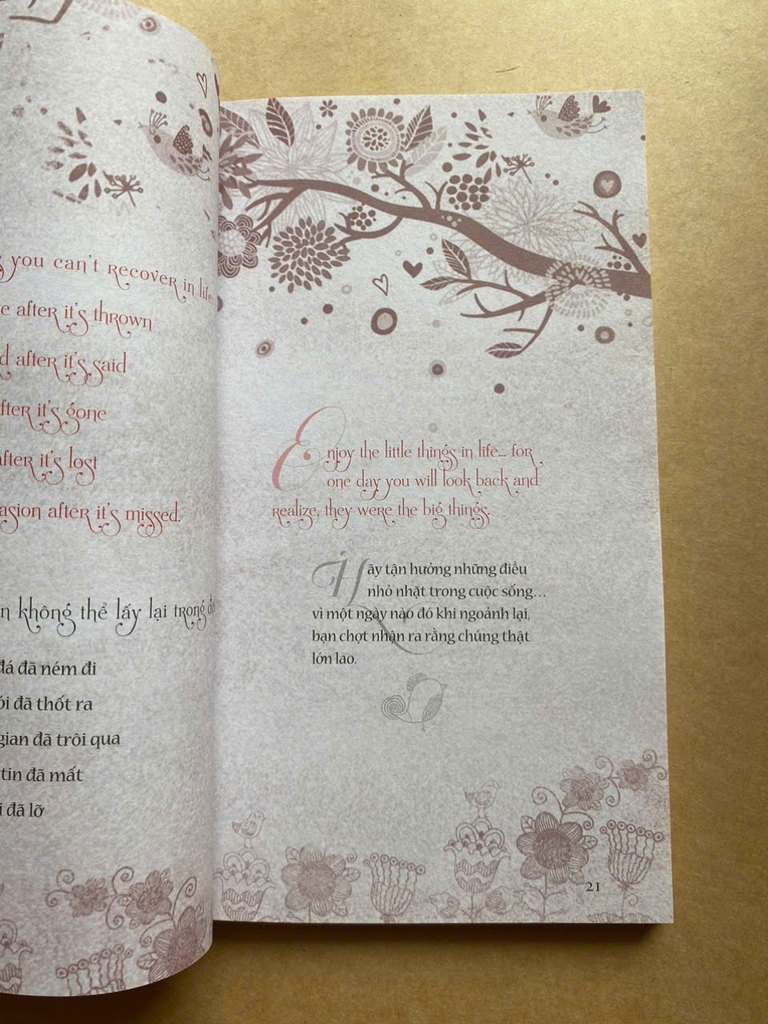 you can't recover in life
after it's thrown
after it's said
after it's gone
after it's lost
after it's missed.
không thể lấy lại trong
đá đã ném đi
đã thốt ra
gian đã trôi qua
tin đã mất
đã lỡ
Enjoy the little things in life... for
one day you will look back and
realize, they were the big things.
Hãy tận hưởng những điều
nhỏ nhặt trong cuộc sống...
vì một ngày nào đó khi ngoảnh lại,
bạn chợt nhận ra rằng chúng thật
lớn lao.
21